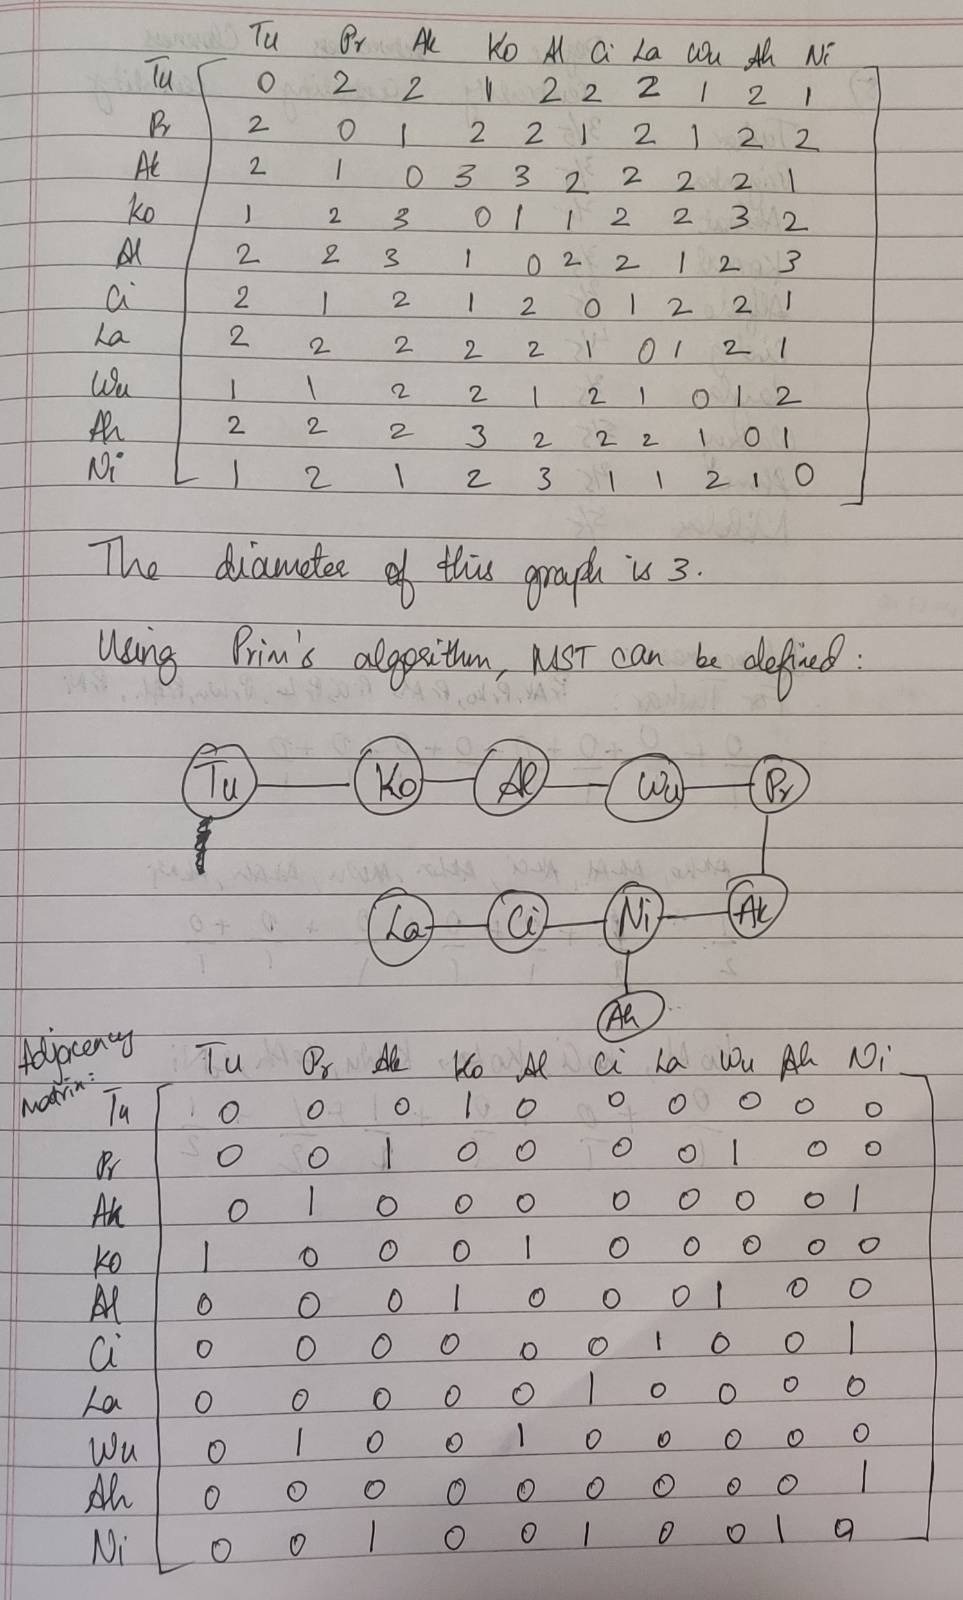 Tu Pr Ak Ko Al Ci La Wu Ah Ni
Tu 0 2 2 1 2 2 2 1 2 1
Pr 2 0 1 2 2 1 2 1 2 2
Ak 2 1 0 3 3 2 2 2 2 1
Ko 1 2 3 0 1 1 2 2 3 2
Al 2 2 3 1 0 2 2 1 2 3
Ci 2 1 2 1 2 0 1 2 2 1
La 2 2 2 2 2 1 0 1 2 1
Wu 1 1 2 2 1 2 1 0 1 2
Ah 2 2 2 3 2 2 2 1 0 1
Ni 1 2 1 2 3 1 1 2 1 0
The diameter of this graph is 3.
Using Prim's algorithm, MST can be defined:
Tu Ko Al Wu Pr
La Ci Ni Ak
Ah
Adjacency
matrix:
Tu Pr Ak Ko Al Ci La Wu Ah Ni
Tu 0 0 0 1 0 0 0 0 0 0
Pr 0 0 1 0 0 0 0 1 0 0
Ak 0 1 0 0 0 0 0 0 0 1
Ko 1 0 0 0 1 0 0 0 0 0
Al 0 0 0 1 0 0 0 1 0 0
Ci 0 0 0 0 0 0 1 0 0 1
La 0 0 0 0 0 1 0 0 0 0
Wu 0 1 0 0 1 0 0 0 0 0
Ah 0 0 0 0 0 0 0 0 0 1
Ni 0 0 1 0 0 1 0 0 1 0